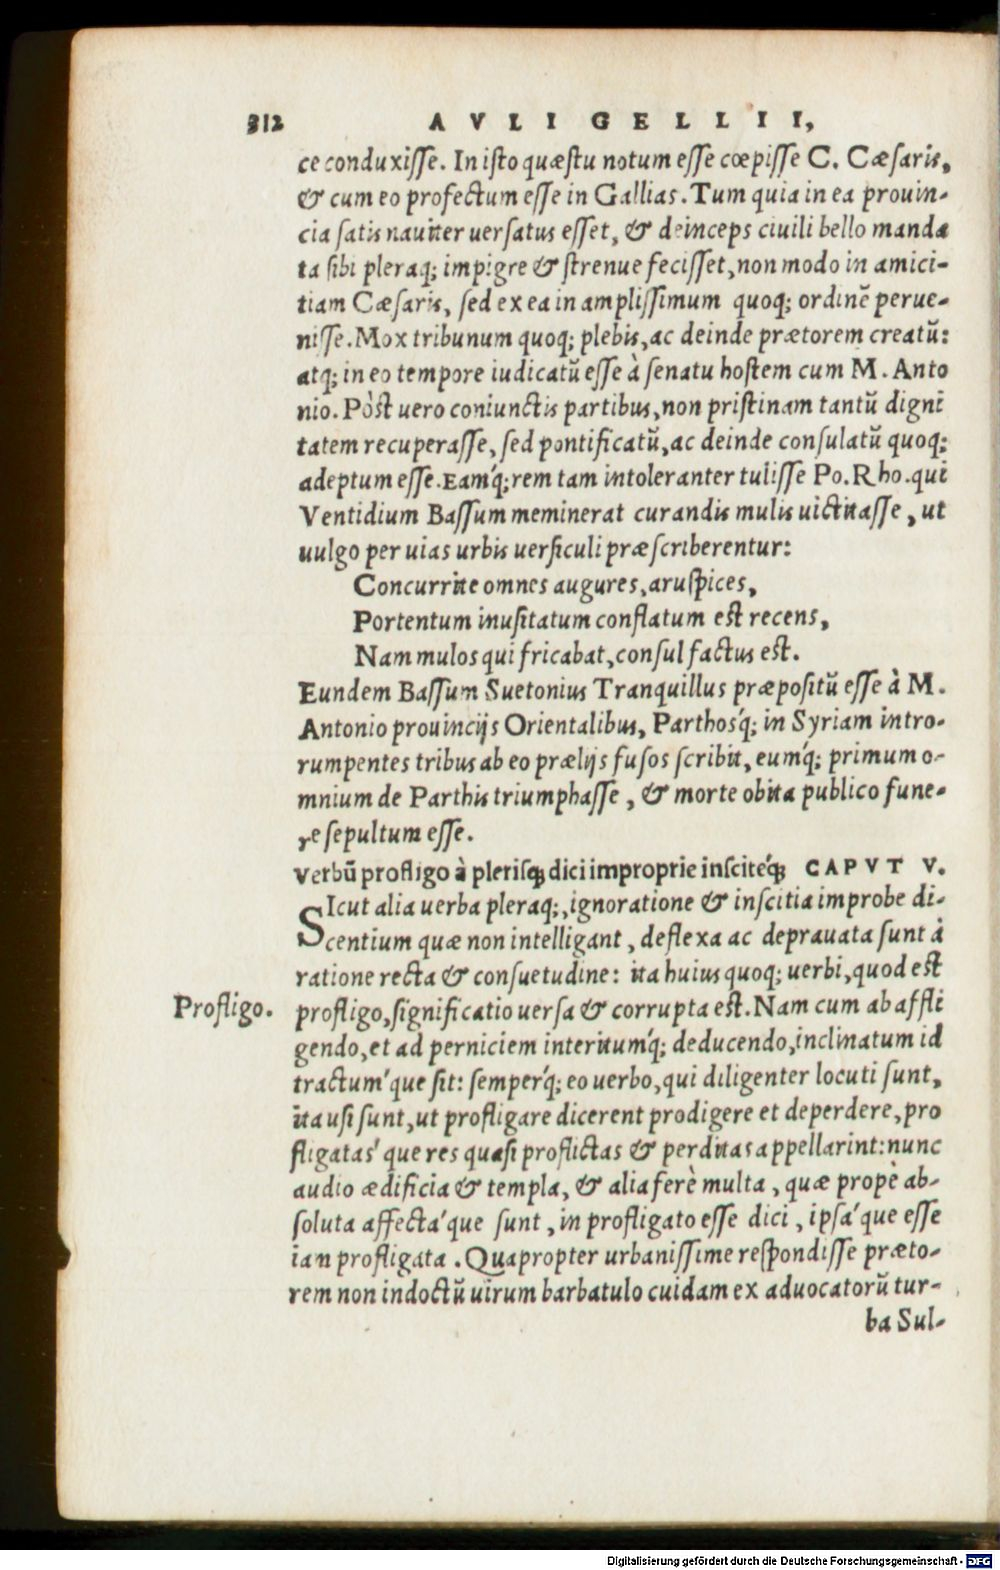 312 AVLI GELLII,
ce conduxisse. In isto quæstu notum esse cœpisse C. Cæsaris,
& cum eo profectum esse in Gallias. Tum quia in ea prouin-
cia satis nauiter uersatus esset, & deinceps ciuili bello manda
ta sibi pleraq; impigre & strenue fecisset, non modo in amici-
tiam Cæsaris, sed ex ea in amplissimum quoq; ordinē perue-
nisse. Mox tribunum quoq; plebis, ac deinde prætorem creatū:
atq; in eo tempore iudicatū esse à senatu hostem cum M. Anto
nio. Pòst uero coniunctis partibus, non pristinam tantū digni
tatem recuperasse, sed pontificatū, ac deinde consulatū quoq;
adeptum esse. Eaḿq; rem tam intoleranter tulisse Po. Rho. qui
Ventidium Bassum meminerat curandis mulis uictitasse, ut
uulgo per uias urbis uersiculi præscriberentur:
Concurrite omnes augures, aruspices,
Portentum inusitatum conflatum est recens,
Nam mulos qui fricabat, consul factus est.
Eundem Bassum Suetonius Tranquillus præpositū esse à M.
Antonio prouincijs Orientalibus, Parthos´q; in Syriam intro-
rumpentes tribus ab eo prælijs fusos scribit, eum´q; primum o-
mnium de Parthis triumphasse, & morte obita publico fune-
re sepultum esse.
Verbū profligo à plerisq; dici improprie inscite´q; CAPVT V.
SIcut alia uerba pleraq;, ignoratione & inscitia improbe di-
centium quæ non intelligant, deflexa ac deprauata sunt à
ratione recta & consuetudine: ita huius quoq; uerbi, quod est
Profligo. profligo, significatio uersa & corrupta est. Nam cum ab affli
gendo, et ad perniciem interitum´q; deducendo, inclinatum id
tractum´que sit: semper´q; eo uerbo, qui diligenter locuti sunt,
ita usi sunt, ut profligare dicerent prodigere et deperdere, pro
fligatas´que res quasi proflictas & perditas appellarint: nunc
audio ædificia & templa, & alia ferè multa, quæ propè ab-
soluta affecta´que sunt, in profligato esse dici, ipsa´que esse
ian profligata. Quapropter urbanissime respondisse præto-
rem non indoctū uirum barbatulo cuidam ex aduocatorū tur-
ba Sul-
Digitalisierung gefördert durch die Deutsche Forschungsgemeinschaft - DFG